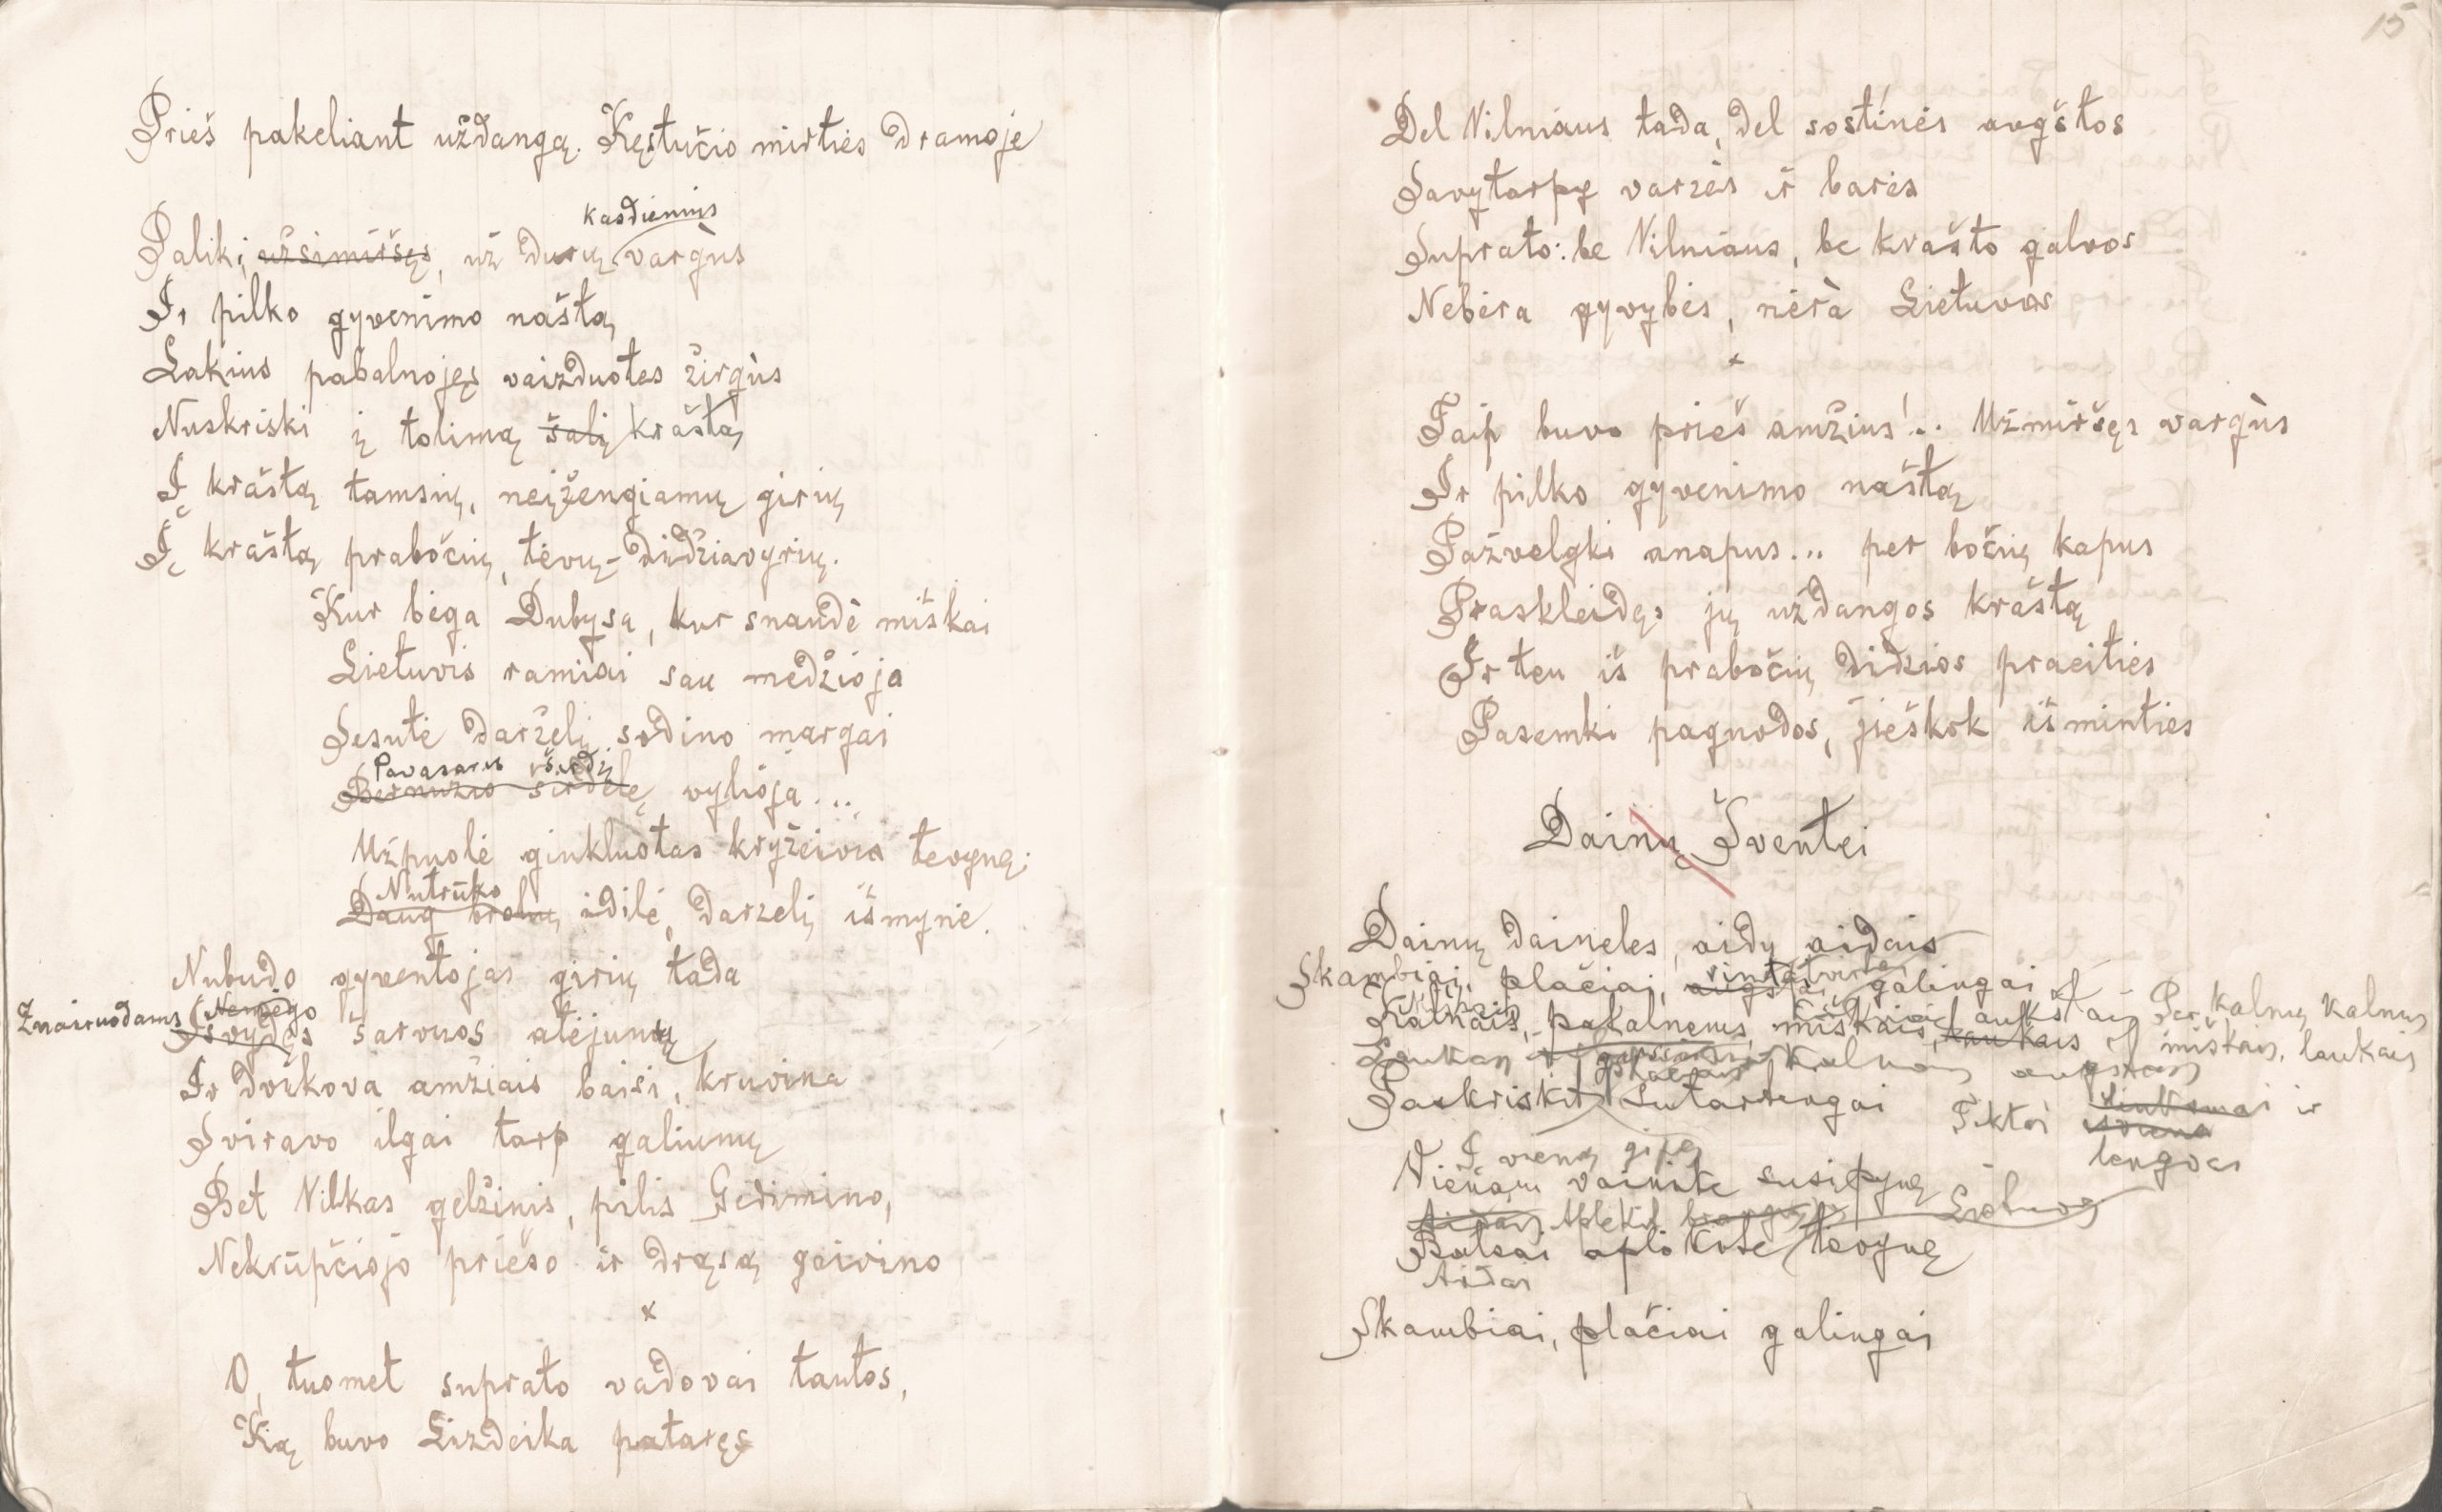 Prieš pakeliant uždangą. Kęstučio mirties dramoje
kasdienius
Paliki, užsimiršęs, už durų vargùs
Ir pilko gyvenimo naštą
Lakius pabalnojęs vaizduotes žirgùs
Nuskriski į tolimą šalį kraštą
Į kraštą tamsių, neįžengiamų girių
Į kraštą prabočių, tėvų-didžiavyrių.
Kur bėga Dubysa, kur snaudė miškai
Lietuvis ramiai sau medžioja
Sesutė darželį sodino margai
Pavasaris širdį
Bernužio širdelę vylioja...
Užpuolė ginkluotas kryžeivis tevynę;
Nutrūko
Daug brolių idilė, darzelį išmynė.
Nubudo gyventojas girių tada
Žnairuodams Nemėgo
Išvydęs šarvuos atėjunų
Ir dvikova amžiais baisi, kruvina
Sviravo ilgai tarp galiunų
Bet Vilkas geležinis, pilis Gedimino,
Nekrūpčiojo priešo ir drąsą gaivino
x
O, tuomet suprato vadovai tautos,
Ką buvo Lizdeika pataręs
15
Del Vilniaus tada, del sostinės augštos
Savytarpy varzės ir barės
Suprato: be Vilniaus, be krašto galvos
Nebėra gyvybės, nėrà Lietuvos
x
Taip buvo prieš amžius!.. Užmiršęs vargùs
Ir pilko gyvenimo naštą
Pažvelgki anapus... per bočių kapus
Praskleidęs jų uždangos kraštą
Ir ten iš prabočių didzios praeities
Pasemki paguodos, jieškok išminties
Dainų Šventei
Dainų daineles, aidų aidais
Skambiai, plačiai, galingai
Per kalnų kalnus
Kalnais, pakalnemis, miškais, laukais
miškais, laukais
Paskriskit sutartingai
Tiktai ir
lengvai
Į vieną giją
Vienam vainike susipynę
Lietuvą
Balsai aplėkite tevynę
Aidai
Skambiai, plačiai galingai